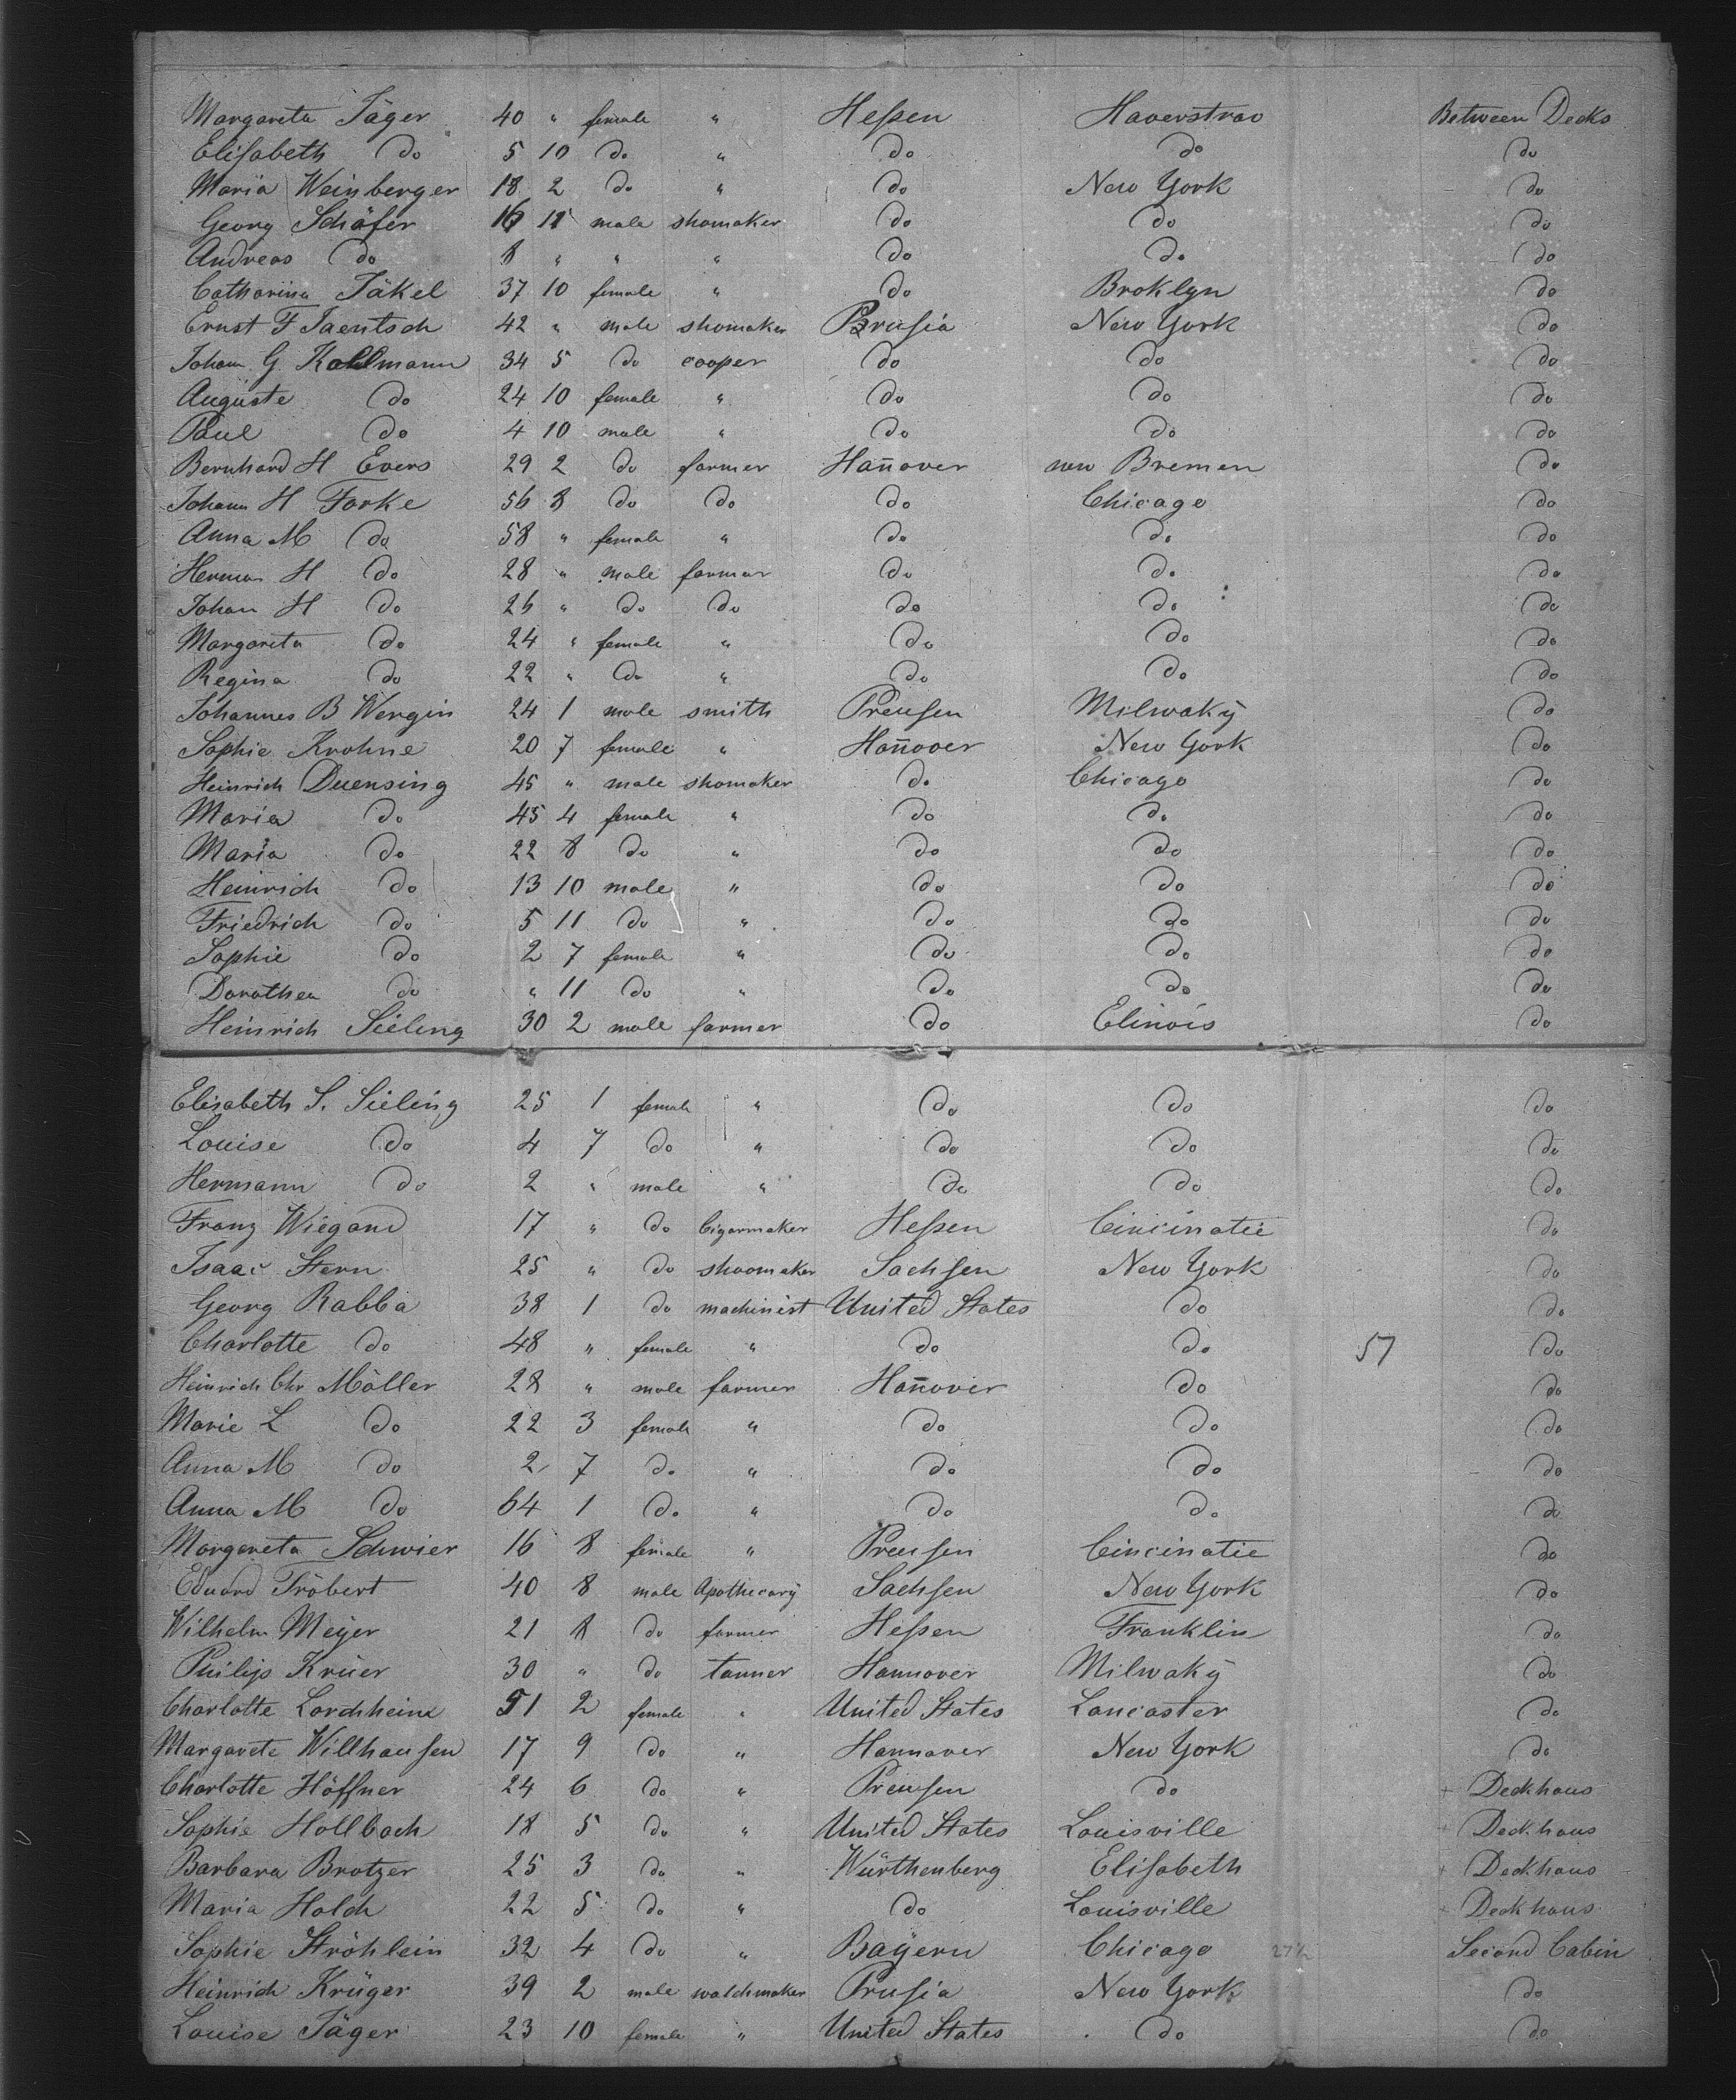 Margareta Jäger 40 " female " Heßen Haverstrav Between Decks
Elisabeth do 5 10 do " do do do
Maria Weinberger 18 2 do " do New York do
Georg Schäfer 16 11 male shomaker do do do
Andreas do 8 " " " do do do
Catharina Jäkel 37 10 female " do Broklyn do
Ernst F Jaentsch 42 " male shomaker Prusia New York do
Johann G. Kohlmann 34 5 do cooper do do do
Auguste do 24 10 female " do do do
Paul do 4 10 male " do do do
Bernhard H Evers 29 2 do farmer Han̄over new Bremen do
Johann H Forke 56 8 do do do Chicago do
Anna M do 58 " female " do do do
Herman H do 28 " male farmer do do do
Johan H do 26 " do do do do do
Margareta do 24 " female " do do do
Regina do 22 " do " do do do
Johannes B Wergin 24 1 male smith Preusen Milwaky do
Sophie Krohne 20 7 female " Han̄over New York do
Heinrich Duensing 45 " male shomaker do Chicago do
Maria do 45 4 female " do do do
Maria do 22 8 do " do do do
Heinrich do 13 10 male " do do do
Friedrich do 5 11 do " do do do
Sophie do 2 7 female " do do do
Dorothea do " 11 do " do do do
Heinrich Sieling 30 2 male farmer do Elinois do
Elisabeth S. Sieling 25 1 female " do do do
Louise do 4 7 do " do do do
Hermann do 2 " male " do do do
Franz Wiegand 17 " do Cigarmaker Heßen Cincinatie do
Isaac Stern 25 " do shoomaker Sachsen New York do
Georg Rabba 38 1 do machinist United States do do
Charlotte do 48 " female " do do 57 do
Heinrich Chr Möller 28 " male farmer Han̄over do do
Marie L do 22 3 female " do do do
Anna M do 2 7 do " do do do
Anna M do 64 1 do " do do do
Margareta Schwier 16 8 female " Preusen Cincinatie do
Eduard Tröbert 40 8 male Apothecary Sachsen New York do
Wilhelm Meyer 21 8 do farmer Heßen Franklin do
Philip Krüer 30 " do tanner Hannover Milwaky do
Charlotte Lordheine 51 2 female " United States Lancaster do
Margarete Willhausen 17 9 do " Hannover New York do
Charlotte Höffner 24 6 do " Preusen do + Deckhaus
Sophie Hollbach 18 5 do " United States Louisville + Deckhaus
Barbara Brotzer 25 3 do " Würthenberg Elisabeth + Deckhaus
Maria Holch 22 5 do " do Louisville + Deckhaus
Sophie Ströhlein 32 4 do " Bayern Chicago 27½ Second Cabin
Heinrich Krüger 39 2 male watchmaker Prusia New York do
Louise Jäger 23 10 female " United States do do